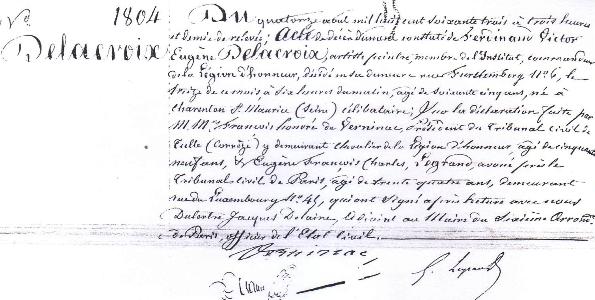 No. 1804
Delacroix
Du quatorze août mil huit cent soixante trois à trois heures
et demie de relevée; Acte de décès dûment constaté de Ferdinand Victor
Eugène Delacroix, artiste peintre, membre de l'Institut, commandeur
de la Légion d'honneur, décédé en sa demeure rue Furstemberg No. 6, le
treize de ce mois à six heures du matin, âgé de soixante cinq ans, né à
Charenton St. Maurice (Seine) célibataire; Sur la déclaration faite par
M.M. François honoré de Verninac, Président du Tribunal civil de
Tulle (Corrèze) y demeurant chevalier de la Légion d'honneur, âgé de cinquante
neuf ans, & Eugène François Charles, Legrand, avoué près le
Tribunal civil de Paris, âgé de trente quatre ans, demeurant
rue du Luxembourg No. 45, qui ont signé après lecture avec nous
Jacques Delaine, adjoint au Maire du Sixième Arrondt.
de Paris, officier de l'Etat Civil.
Verninac
E. Legrand